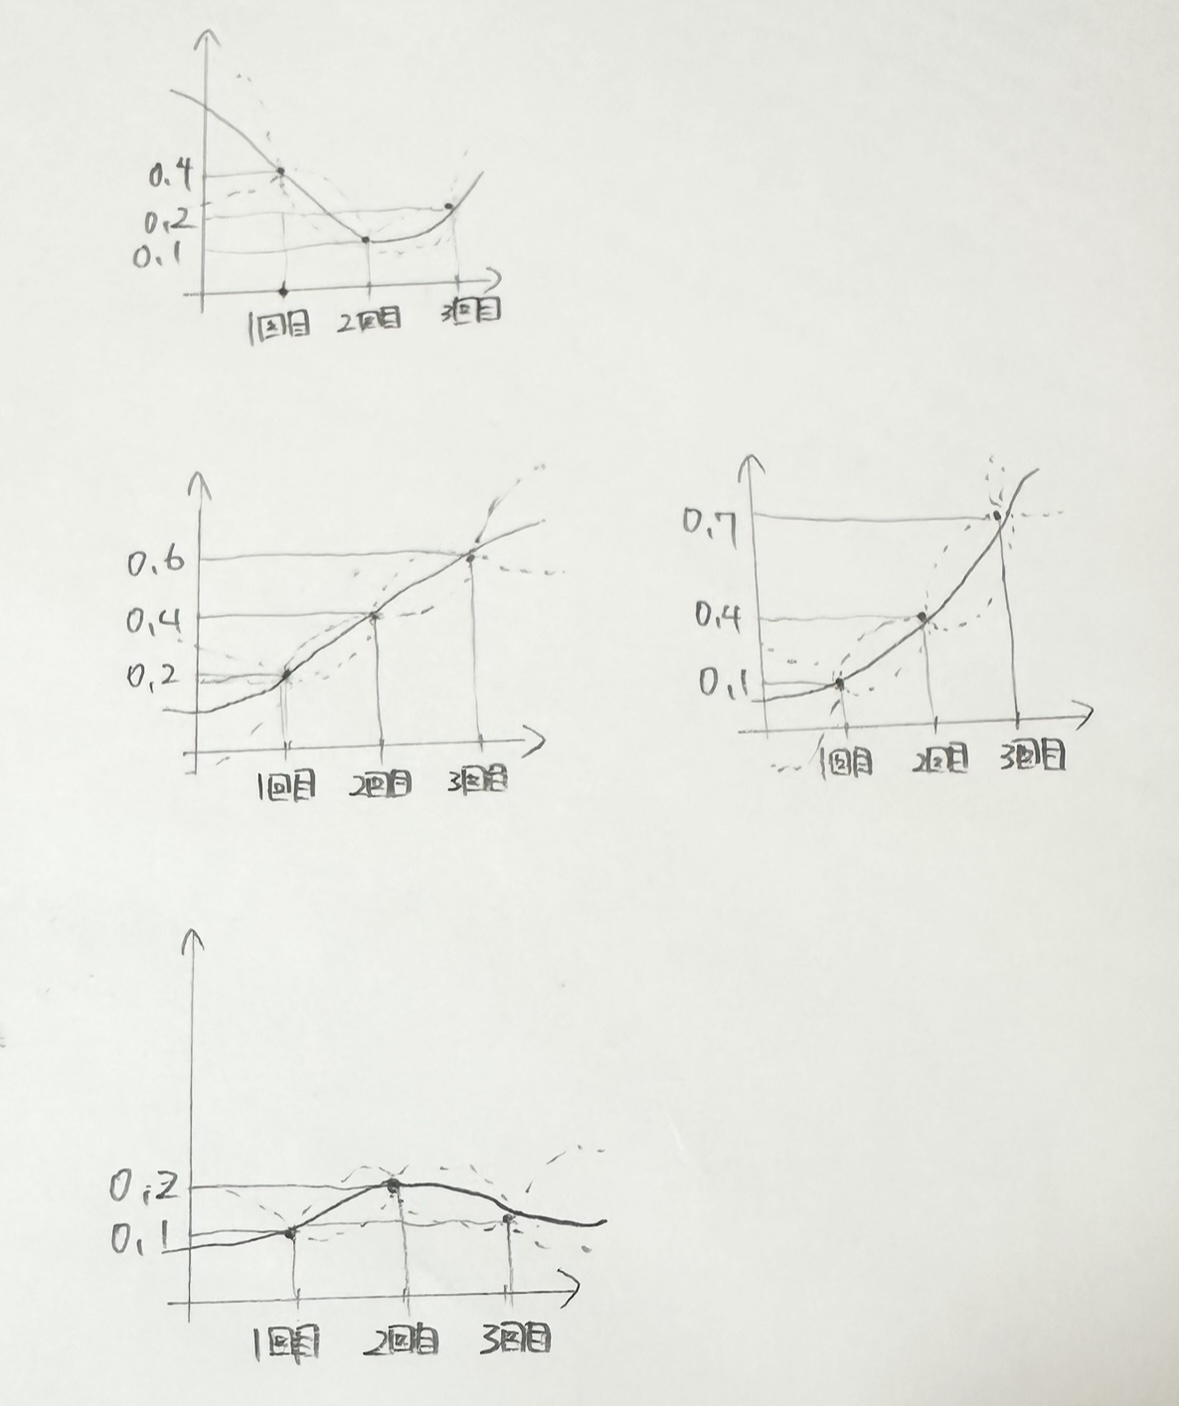 0.4
0.2
0.1
1回目 2回目 3回目
0.6
0.4
0.2
1回目 2回目 3回目
0.7
0.4
0.1
1回目 2回目 3回目
0.2
0.1
1回目 2回目 3回目